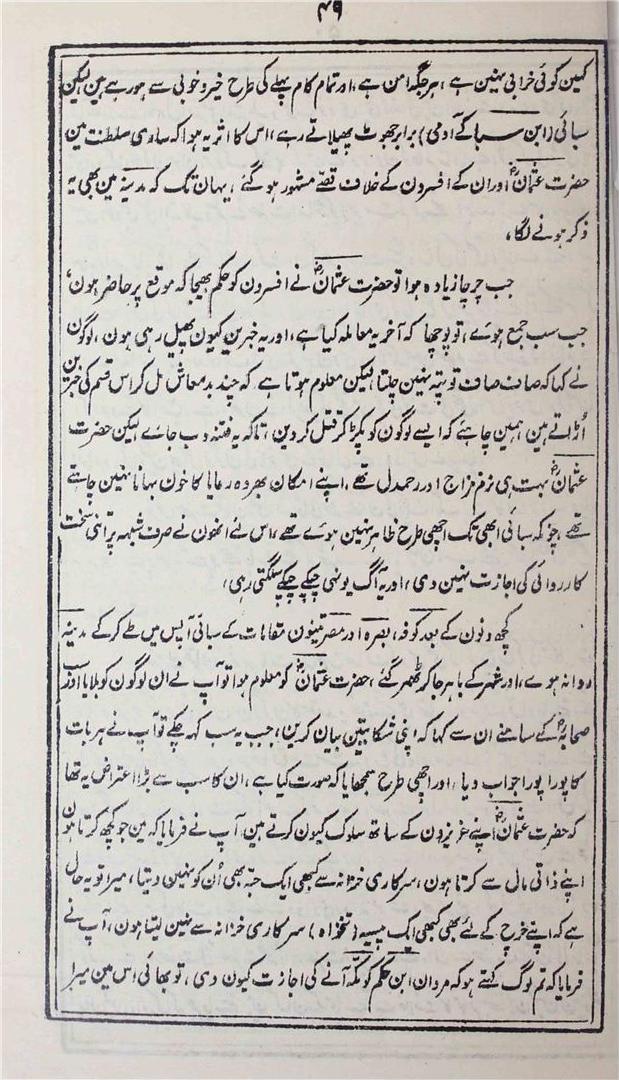 ۴۹
کہین کوئی خرابی نہین ہے، ہر جگہ امن ہے، اور تمام کام پہلے کی طرح خیر و خوبی سے ہو رہے ہین لیکن
سبائی (ابن سبا کے آدمی) برابر جھوٹ پھیلاتے رہے، اس کا اثر یہ ہوا کہ ساری سلطنت مین
حضرت عثمانؓ اور ان کے افسرون کے خلاف قصے مشہور ہو گئے، یہان تک کہ مدینہ مین بھی یہ
ذکر ہونے لگا،
جب چرچا زیادہ ہوا تو حضرت عثمانؓ نے افسرون کو حکم بھیجا کہ موقع پر حاضر ہون،
جب سب جمع ہوئے، تو پوچھا کہ آخر یہ معاملہ کیا ہے، اور یہ خبرین کیون پھیل رہی ہون، لوگون
نے کہا کہ صاف صاف تو پتہ نہین چلتا لیکن معلوم ہوتا ہے کہ چند بدمعاش مل کر اس قسم کی خبرین
اُڑاتے ہین ہمین چاہئے کہ ایسے لوگون کو پکڑ کر قتل کر دین، تاکہ یہ فتنہ دب جائے لیکن حضرت
عثمانؓ بہت ہی نرم مزاج اور رحمدل تھے، اپنے امکان بھر وہ رعایا کا خون بہانا نہین چاہتے
تھے، چونکہ سبائی ابھی تک اچھی طرح ظاہر نہین ہوئے تھے، اس لئے انھون نے صرف شبہہ پر اتنی سخت
کارروائی کی اجازت نہین دی، اور یہ آگ یونہی چپکے چپکے سلگتی رہی،
کچھ دنون کے بعد کوفہ، بصرہ اور مصر تینون مقامات کے سبائی آپس مین طے کر کے مدینہ
روانہ ہوے، اور شہر کے باہر جا کر ٹھہر گئے، حضرت عثمانؓ کو معلوم ہوا تو آپ نے ان لوگون کو بلایا اور سب
صحابہؓ کے سامنے ان سے کہا کہ اپنی شکایتین بیان کرین، جب یہ سب کہہ چکے تو آپ نے ہر بات
کا پورا پورا جواب دیا، اور اچھی طرح سمجھایا کہ صورت کیا ہے، ان کا سب سے بڑا اعتراض یہ تھا
کہ حضرت عثمانؓ اپنے عزیزون کے ساتھ سلوک کیون کرتے ہین، آپ نے فرمایا کہ مین جو کچھ کرتا ہون
اپنے ذاتی مال سے کرتا ہون، سرکاری خزانہ سے کبھی ایک حبّہ بھی اُن کو نہین دیتا، میرا تو یہ حال
ہے کہ اپنے خرچ کے لئے بھی کبھی ایک پیسہ (تنخواہ) سرکاری خزانہ سے نہین لیتا ہون، آپ نے
فرمایا کہ تم لوگ کہتے ہو کہ مروان ابن حکم کو مکّہ آنے کی اجازت کیون دی، تو بھائی اس مین میرا